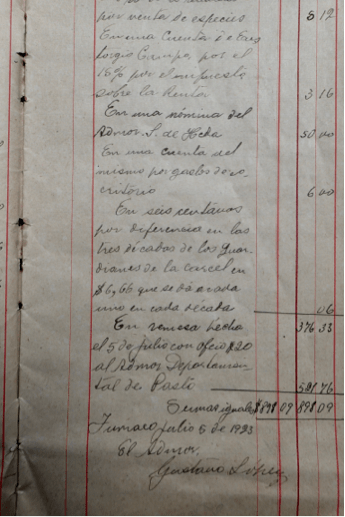 por venta de especies 8 12
En una cuenta de Eus
torgio Crumpa por el
15% por el impuesto
sobre la Renta 3 16
En una nómina del
Admor. S. de Hcda 50 00
En una cuenta del
mismo por gastos de es
critorio 6 00
En seis centavos
por diferencia en las
tres décadas de los Guar
dianes de la carcel en
$6,66 que se da a cada
uno en cada década 06
En remesa hecha
el 5 de julio con oficio 220
al Admor. Departamen
tal de Pasto 521 76
376 33
Sumas iguales $898 09 898 09
Tumaco julio 5 de 1923
El Admor.
Gustavo López